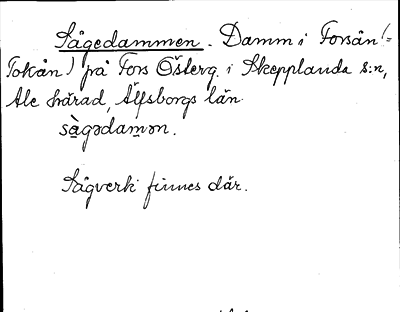 Sågedammen. Damm i Forsån (=
Tokån) på Fors Österg. i Skepplanda s:n,
Ale härad, Älfsborgs län.
sàgədamən.
Sågverk finnes där.